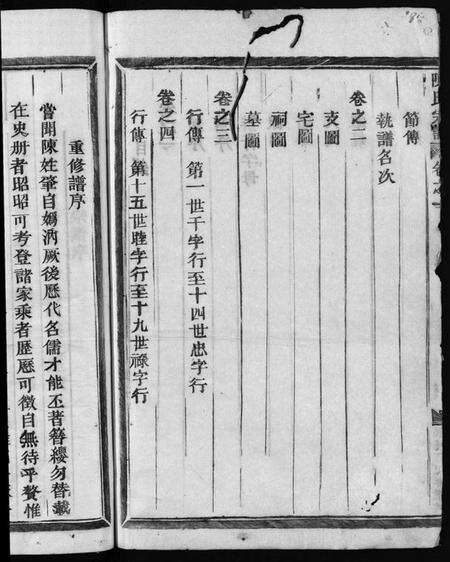 節傳
執譜名次
卷之二
支圖
宅圖
祠圖
墓圖
卷之三
行傳 第一世千字行至十四世忠字行
卷之四
行傳 第十五世睦字行至十九世祿字行
重修譜序
嘗聞陳姓肇自媯汭厥後歷代名儒才能丕著簪纓勿替載
在史册者昭昭可考登諸家乘者歷歷可徵自無待乎贅惟